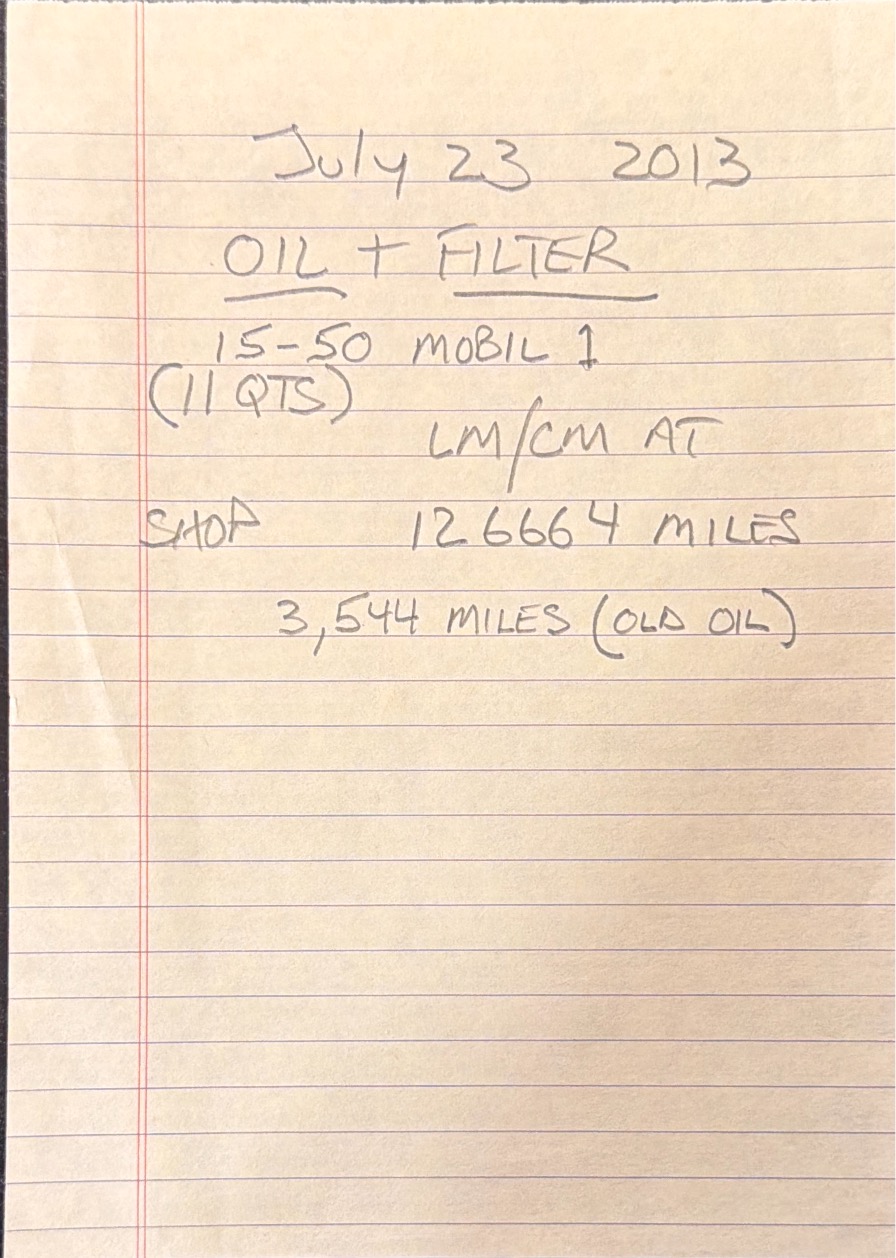 July 23 2013
OIL + FILTER
15-50 MOBIL 1
(11 QTS)
LM/CM AT
SHOP 126664 MILES
3,544 MILES (OLD OIL)